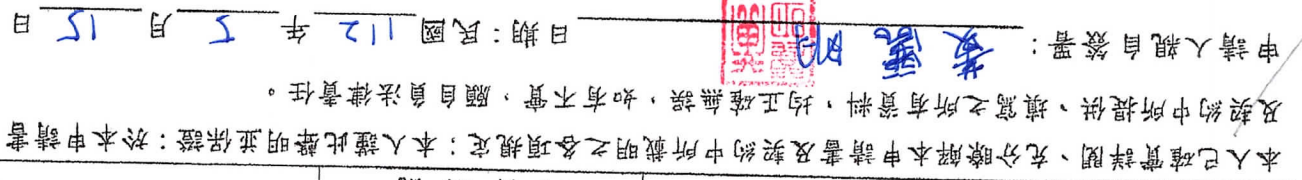 本人已確實詳閱、充分瞭解本申請書及契約中所載明之各項規定；本人謹此聲明並保證：於本申請書
及契約中所提供、填寫之所有資料，均正確無誤，如有不實，願自負法律責任。
申請人親自簽署：黃 明 日期：民國 112 年 5 月 15 日